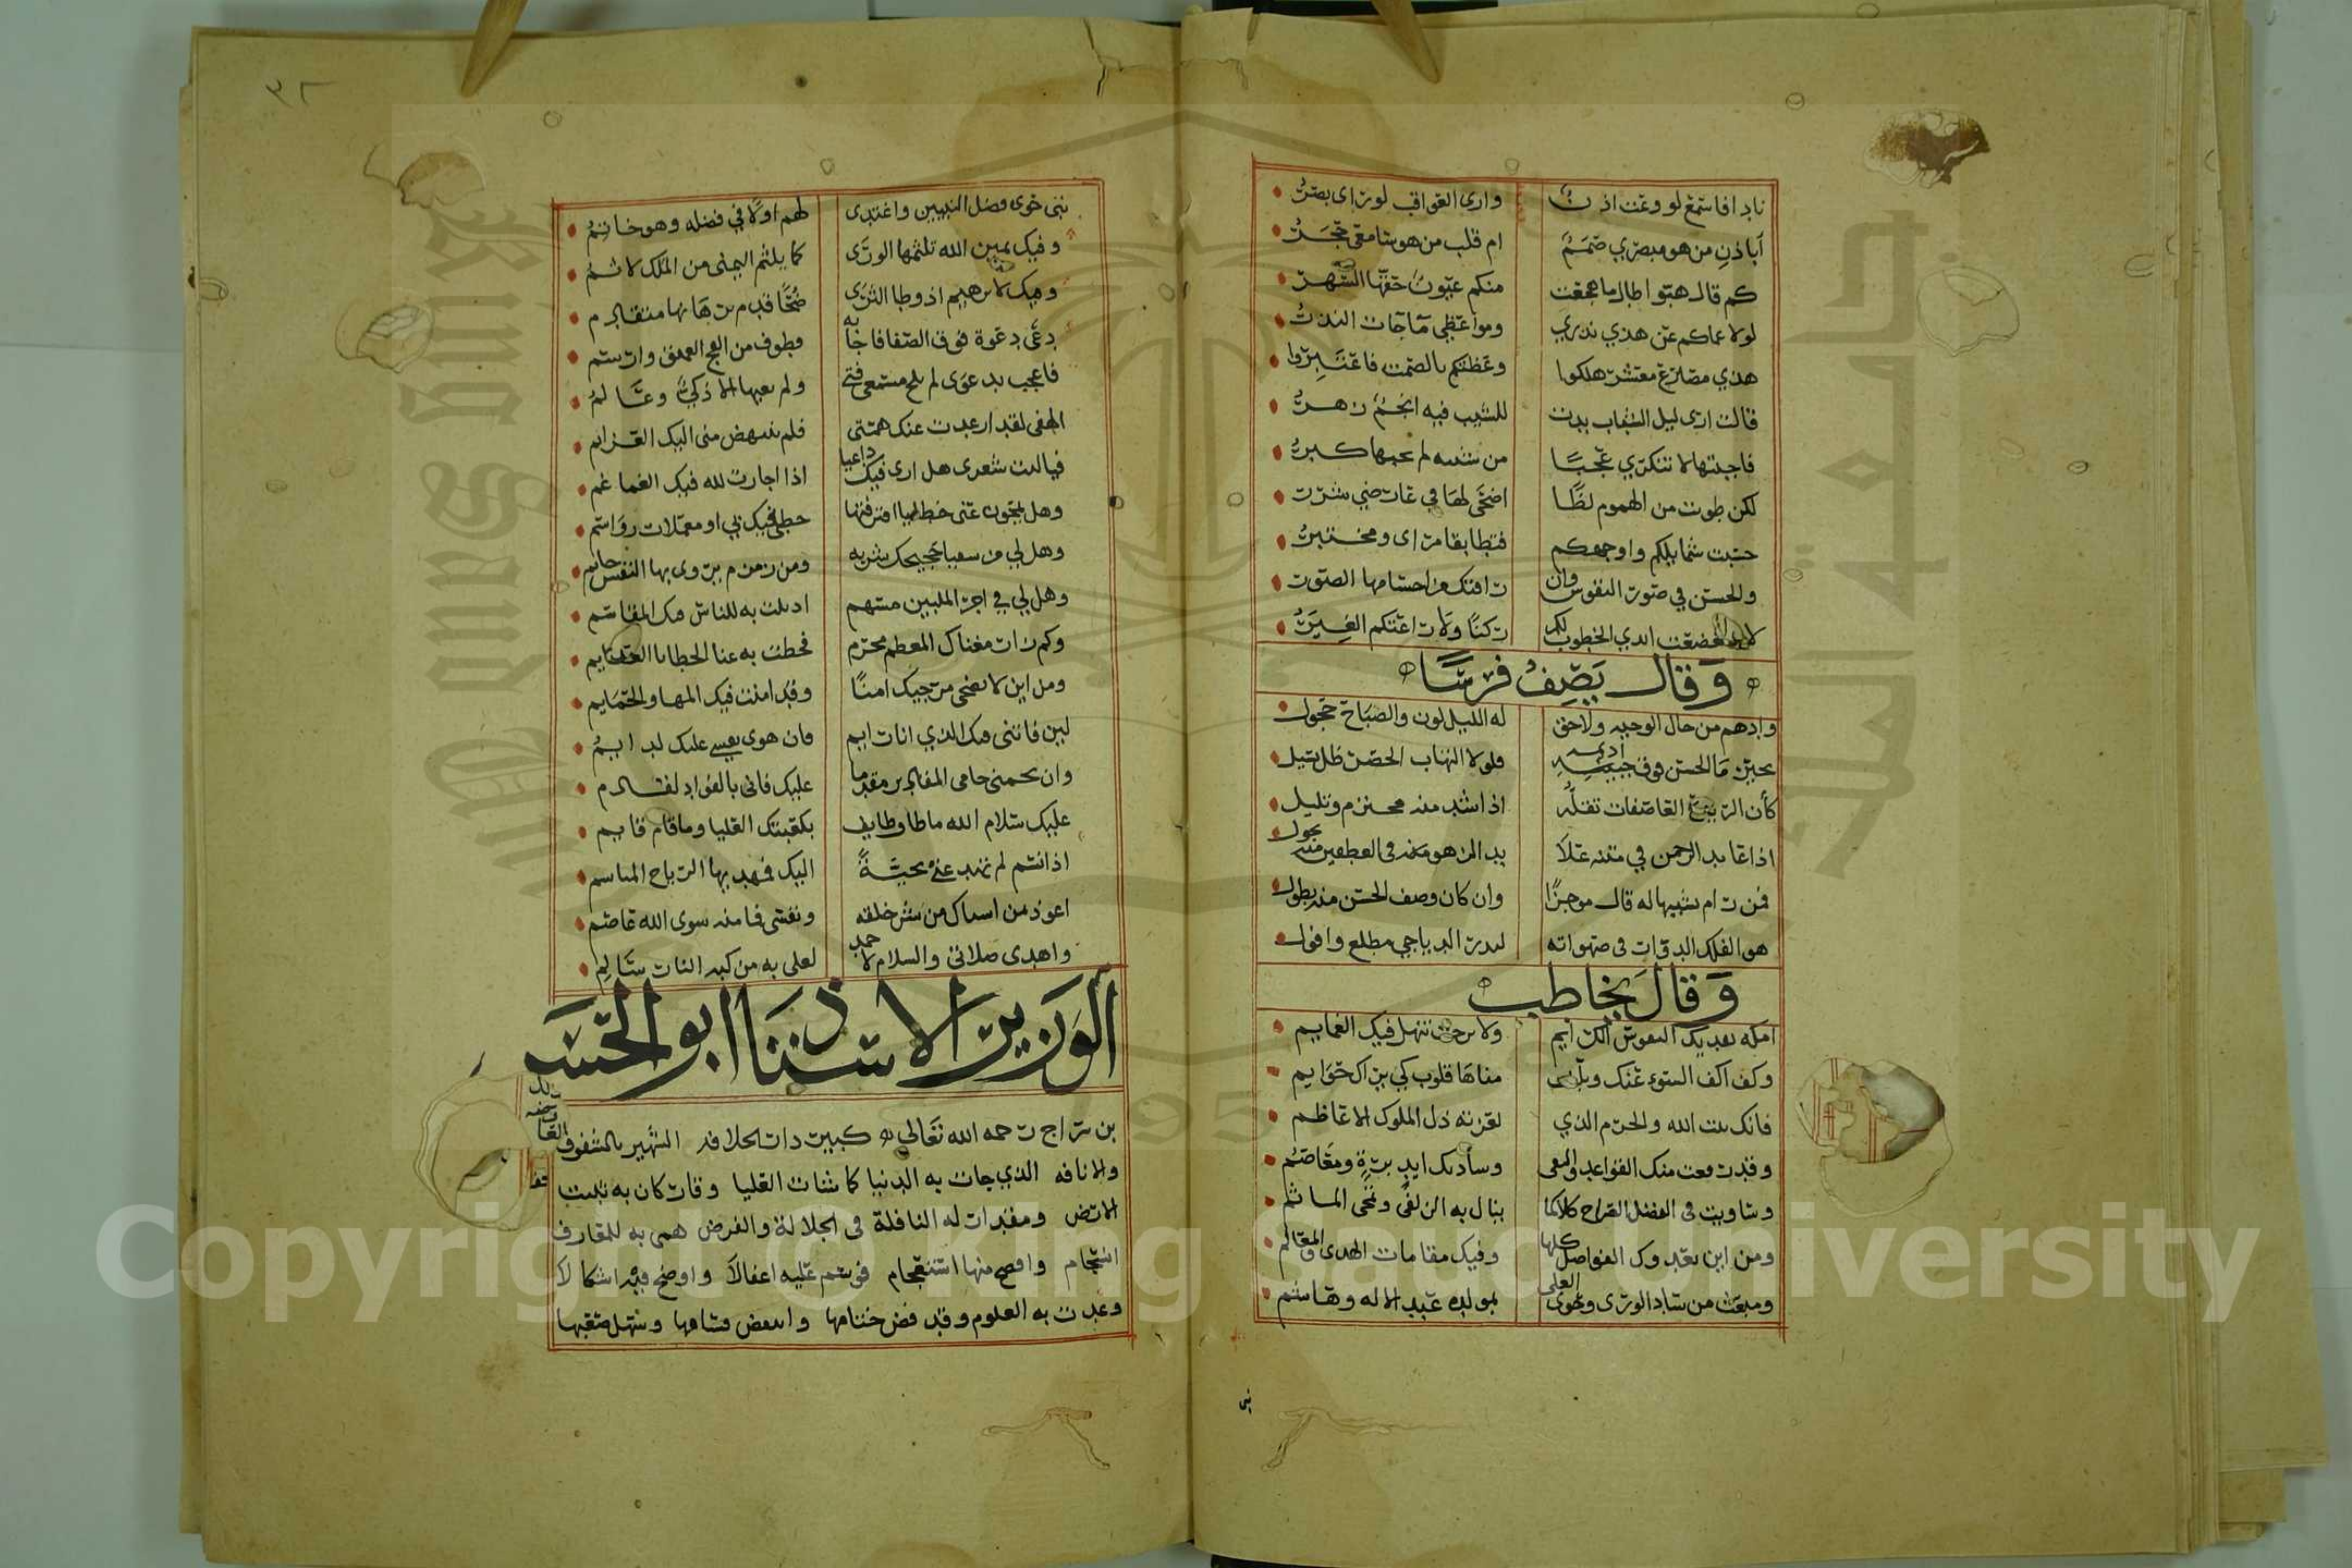 نادا فاسمع لو وعت اذن وارى العواقب لو راى بصر
اباذن من هو مبصري صمم ام قلب من هو سامعي حجر
كم قال هبوا طال ما هجعت منكم عيون حقها السهر
لولا عماكم عن هدي نذري ومواعظي ما جات النذر
هذي مصارع معشر هلكوا وعظتكم بالصمت فاعتبروا
قالت ارى ليل الشباب بدت للشيب فيه انجم زهر
فاجبتها لا تنكري عجبا من شيبه لم يجنها كبر
لكن طويت من الهموم لظا اضحى لها في عارضي شرر
حسنت شمايلكم واوجهكم فتطابقا مراى ومختبر
والحسن في صور النفوس وان راقتك من اجسامها الصور
لا ضعضعت ايدي الخطوب لكم ركنا ولا راعتكم الغير
وقال يصف فرسا
وادهم من حال الوجيه ولاحق له الليل لون والصباح حجول
تحير ما الحسن فوق اديمه فلولا التهاب الحضر ظل يسيل
كأن الريح العاصفات تقله اذا اشتد منه محزم وتليل
اذا عابد الرحمن في متنه علا بدا الزهو منه في العطفين يجول
فمن رام تشبيها له قال موجزا وان كان وصف الحسن منه يطول
هو الفلك الدوار في صهواته لبدر الدياجي مطلع وافول
وقال يخاطب
امكة تفديك النفوس الكرايم ولا برحت تنهل فيك الغمايم
وكف اكف السوء عنك وبلغت مناها قلوب كي تراك حوايم
فانك بيت الله والحرم الذي لعزته ذل الملوك الاعاظم
وقد رفعت منك القواعد والتقى وسادتك ايد برة ومعاصم
وساويت في الفضل المقام كلاكما ينال به الزلفى وتمحى الماثم
ومن اين تعدوك الفواضل كلها وفيك مقامات الهدى والمعالم
ومبعث من ساد الورى وحوى العلى بمولده عبد الاله وهاشم
نبي
٣٢
نبي حوى فضل النبيين واغتدى لهم اولا في فضله وهو خاتم
وفيك يمين الله تلثمها الورى كما يلثم اليمنى من الملك لاثم
وفيك لابرهيم اذ وطا الثرى ضحا قدم برهانها متقادم
دعى دعوة فوق الصفا فاجابه قطوف من الفج العميق وارسم
فاعجب بدعوى لم تلج مسمعي فتى ولم يعيها الا ذكي وعالم
الهفي لقد ارعدت عنك همتي فلم تنهض مني اليك العزايم
فيا ليت شعري هل ارى فيك داعيا اذا اجارت لله فيك الغماغم
وهل تمحون عني خطايا اقترفتها خطى فيك لي او معملات رواسم
وهل لي من سقيا حجيجك شربه ومن زمزم يروى بها النفس حايم
وهل لي في اجر الملبين مسهم اذ بذلت به للناس فيك المقاسم
وكم زار مغناك المعظم محرم فحطت به عنا الخطايا العظايم
ومن اين لا يضحى مرجيك امنا وقد امنت فيك المها والحمايم
لين فاتني منك الذي انا رايم فان هوى نفسي عليك لدايم
وان يحمني حامي المقادير مقدما عليك فاني بالفواد لقادم
عليك سلام الله ما طاف طايف بكعبتك العليا وما قام قايم
اذا نسم لم تهد عني تحية اليك فمهديها الرياح النواسم
اعوذ بمن اسماك من شر خلقه ونفسي فما منه سوى الله عاصم
واهدى صلاتي والسلام لاحمد لعلي به من كبة النار سالم
الوزير الاستاذ ابو الحسن
بن سراج رحمه الله تعالى كبير دار الخلافه الشهير بالشفوف
والانافه الذي جات به الدنيا كما شات العليا وقار كان به ثبت
الارض ومقدار له النافلة في الجلالة والفرض همي به للمعارف
انسجام وافصح منها استعجام فرسم عليه اغفالا واوضح فيه اشكالا
وغدت به العلوم وقد فض ختامها وانفض قتامها وسهل صعبها